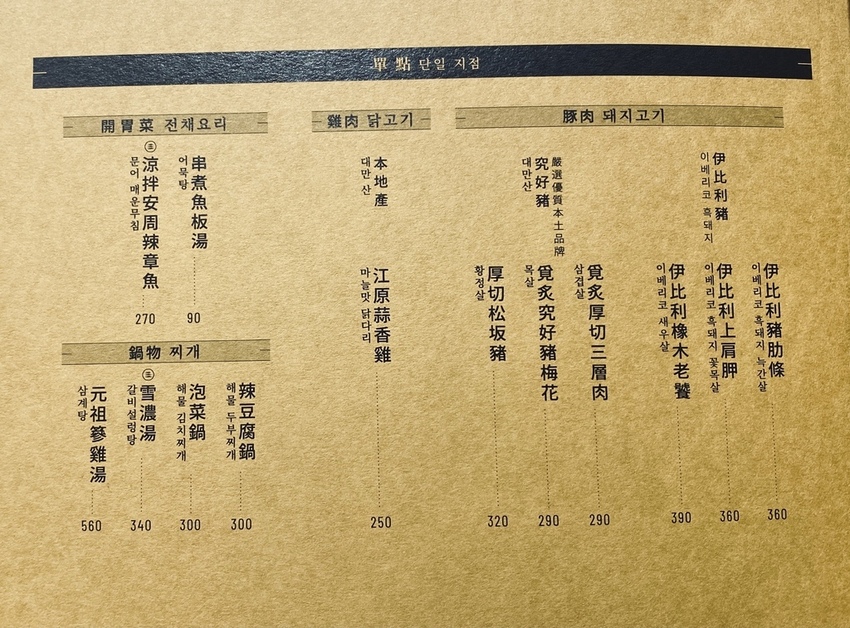 單點 단일 지점
開胃菜 전채요리
串煮魚板湯
어묵탕
90
㊂
涼拌安周辣章魚
문어 매운무침
270
鍋物 찌개
辣豆腐鍋
해물 두부찌개
300
泡菜鍋
해물 김치찌개
300
㊂
雪濃湯
갈비설렁탕
340
元祖蔘雞湯
삼계탕
560
雞肉 닭고기
本地產
대만 산
江原蒜香雞
마늘맛 닭다리
250
豚肉 돼지고기
伊比利豬
이베리코 흑돼지
伊比利豬肋條
이베리코 흑돼지 늑간살
360
伊比利上肩胛
이베리코 흑돼지 꽃목살
360
伊比利橡木老饕
이베리코 새우살
390
嚴選優質本土品牌
究好豬
대만산
覓炙厚切三層肉
삼겹살
290
覓炙究好豬梅花
목살
290
厚切松坂豬
황정살
320